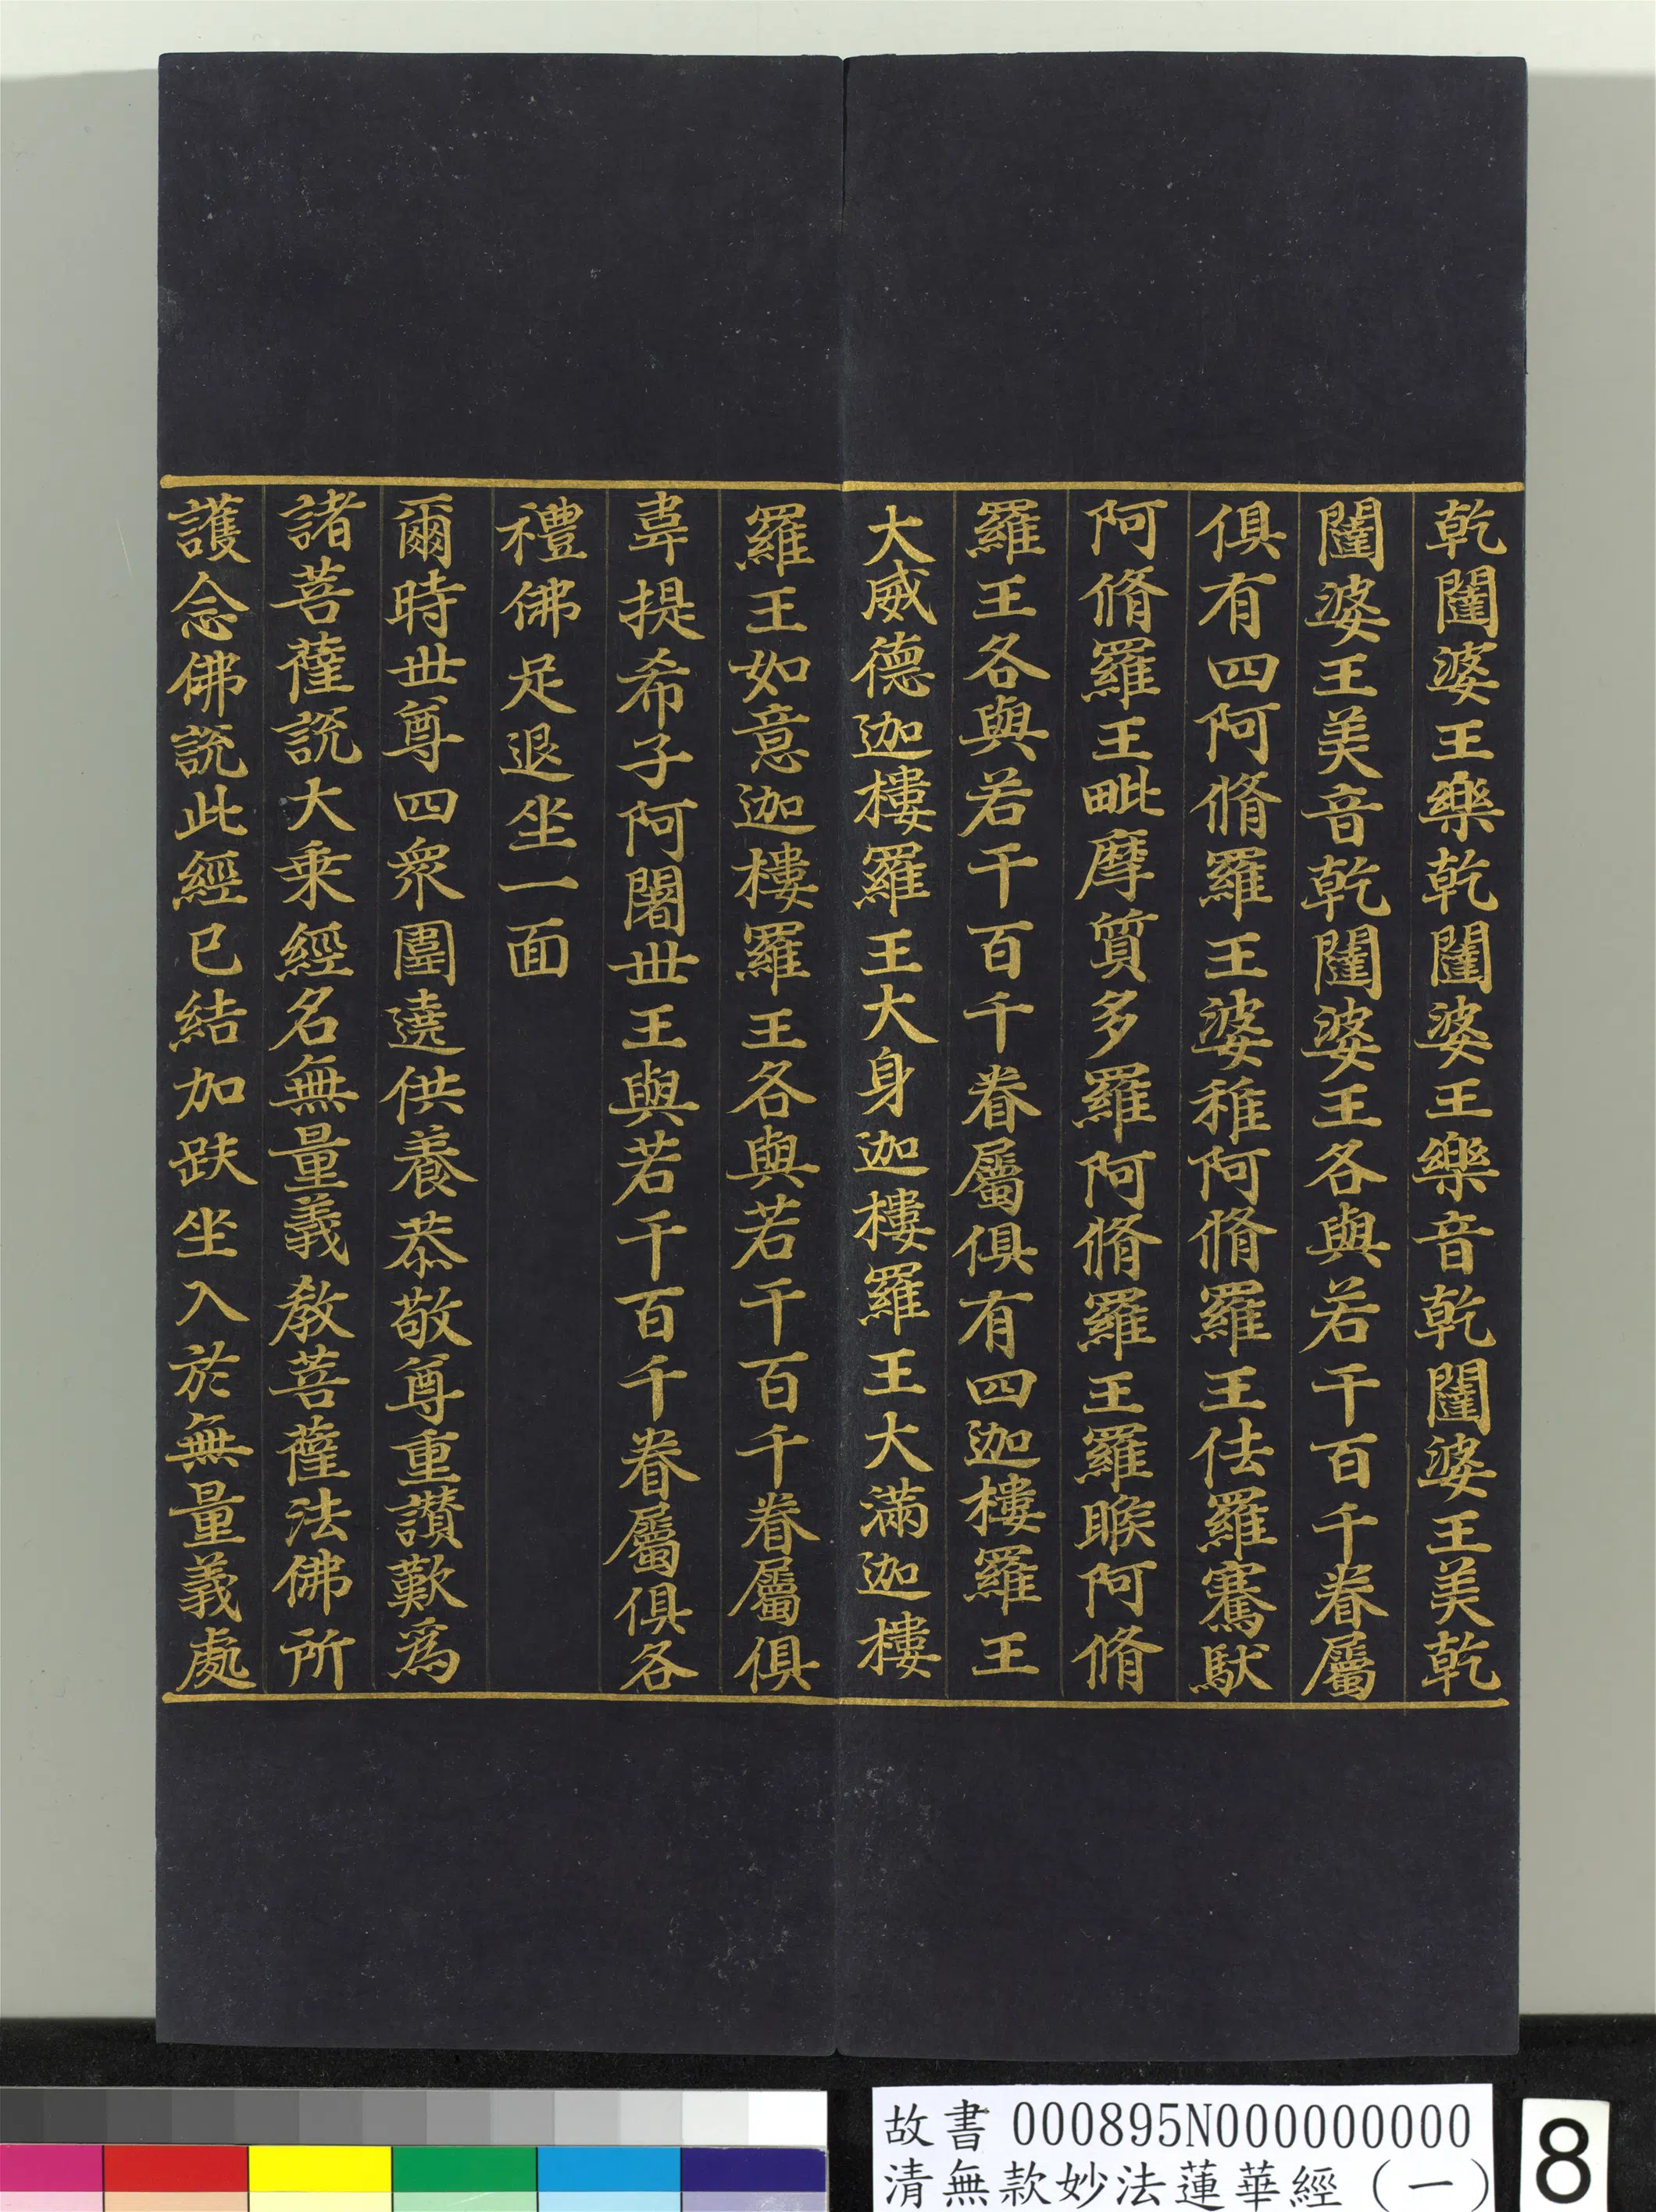 乾闥婆王樂乾闥婆王樂音乾闥婆王美乾
闥婆王美音乾闥婆王各與若干百千眷屬
俱有四阿脩羅王婆稚阿脩羅王佉羅騫馱
阿脩羅王毗摩質多羅阿脩羅王羅睺阿脩
羅王各與若干百千眷屬俱有四迦樓羅王
大威德迦樓羅王大身迦樓羅王大滿迦樓
羅王如意迦樓羅王各與若干百千眷屬俱
韋提希子阿闍世王與若干百千眷屬俱各
禮佛足退坐一面
爾時世尊四衆圍遶供養恭敬尊重讚歎爲
諸菩薩說大乘經名無量義教菩薩法佛所
護念佛說此經已結加趺坐入於無量義處
故書 000895N000000000
清無款妙法蓮華經（一）
8